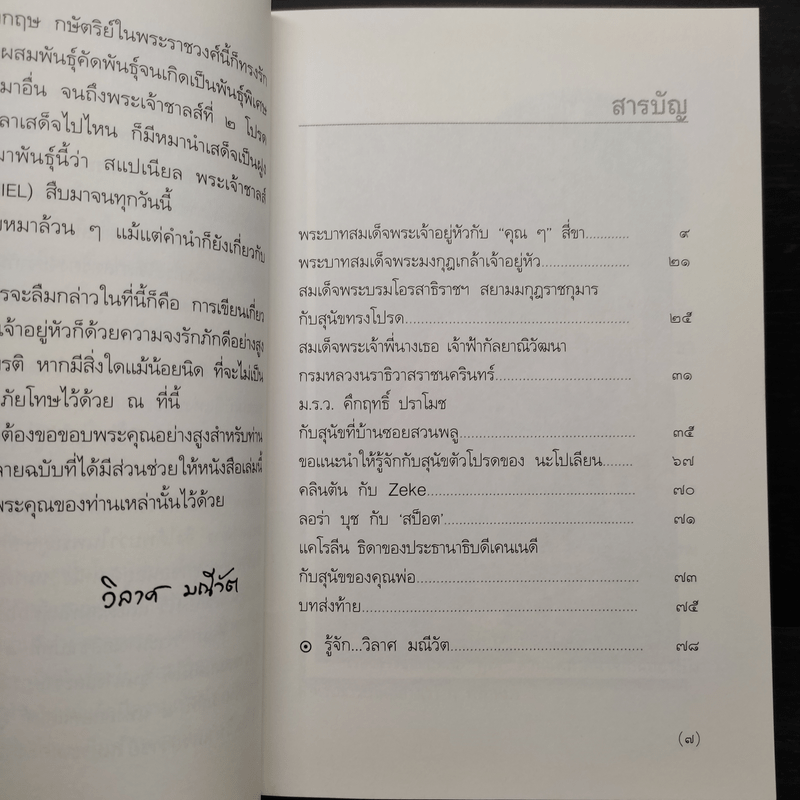 กฤษ กษัตริย์ในพระราชวงศ์นี้ก็ทรงรัก
ผสมพันธุ์คัดพันธุ์จนเกิดเป็นพันธุ์พิเศษ
มาอื่น จนถึงพระเจ้าชาลส์ที่ ๒ โปรด
ลาเสด็จไปไหน ก็มีหมานำเสด็จเป็นฝูง
มาพันธุ์นี้ว่า สแปเนียล พระเจ้าชาลส์
IEL) สืบมาจนทุกวันนี้
หมาล้วน ๆ แม้แต่คำนำก็ยังเกี่ยวกับ
รจะลืมกล่าวในที่นี้ก็คือ การเขียนเกี่ยว
เจ้าอยู่หัวก็ด้วยความจงรักภักดีอย่างสูง
รติ หากมีสิ่งใดแม้น้อยนิด ที่จะไม่เป็น
ภัยโทษไว้ด้วย ณ ที่นี้
ต้องขอขอบพระคุณอย่างสูงสำหรับท่าน
ลายฉบับที่ได้มีส่วนช่วยให้หนังสือเล่มนี้
พระคุณของท่านเหล่านั้นไว้ด้วย
วิลาศ มณีวัต
สารบัญ
พระบาทสมเด็จพระเจ้าอยู่หัวกับ “คุณ ๆ” สี่ขา............ ๙
พระบาทสมเด็จพระมงกุฎเกล้าเจ้าอยู่หัว........................ ๒๑
สมเด็จพระบรมโอรสาธิราชฯ สยามมกุฎราชกุมาร
กับสุนัขทรงโปรด........................................................ ๒๕
สมเด็จพระเจ้าพี่นางเธอ เจ้าฟ้ากัลยาณิวัฒนา
กรมหลวงนราธิวาสราชนครินทร์.................................... ๓๑
ม.ร.ว. คึกฤทธิ์ ปราโมช
กับสุนัขที่บ้านซอยสวนพลู............................................. ๓๕
ขอแนะนำให้รู้จักกับสุนัขตัวโปรดของ นะโปเลียน........ ๖๗
คลินตัน กับ Zeke........................................................ ๗๐
ลอร่า บุช กับ ‘สป็อต’.................................................. ๗๑
แคโรลีน ธิดาของประธานาธิบดีเคนเนดี
กับสุนัขของคุณพ่อ........................................................ ๗๓
บทส่งท้าย.................................................................... ๗๕
⊙ รู้จัก...วิลาศ มณีวัต.................................................... ๗๘
(๗)